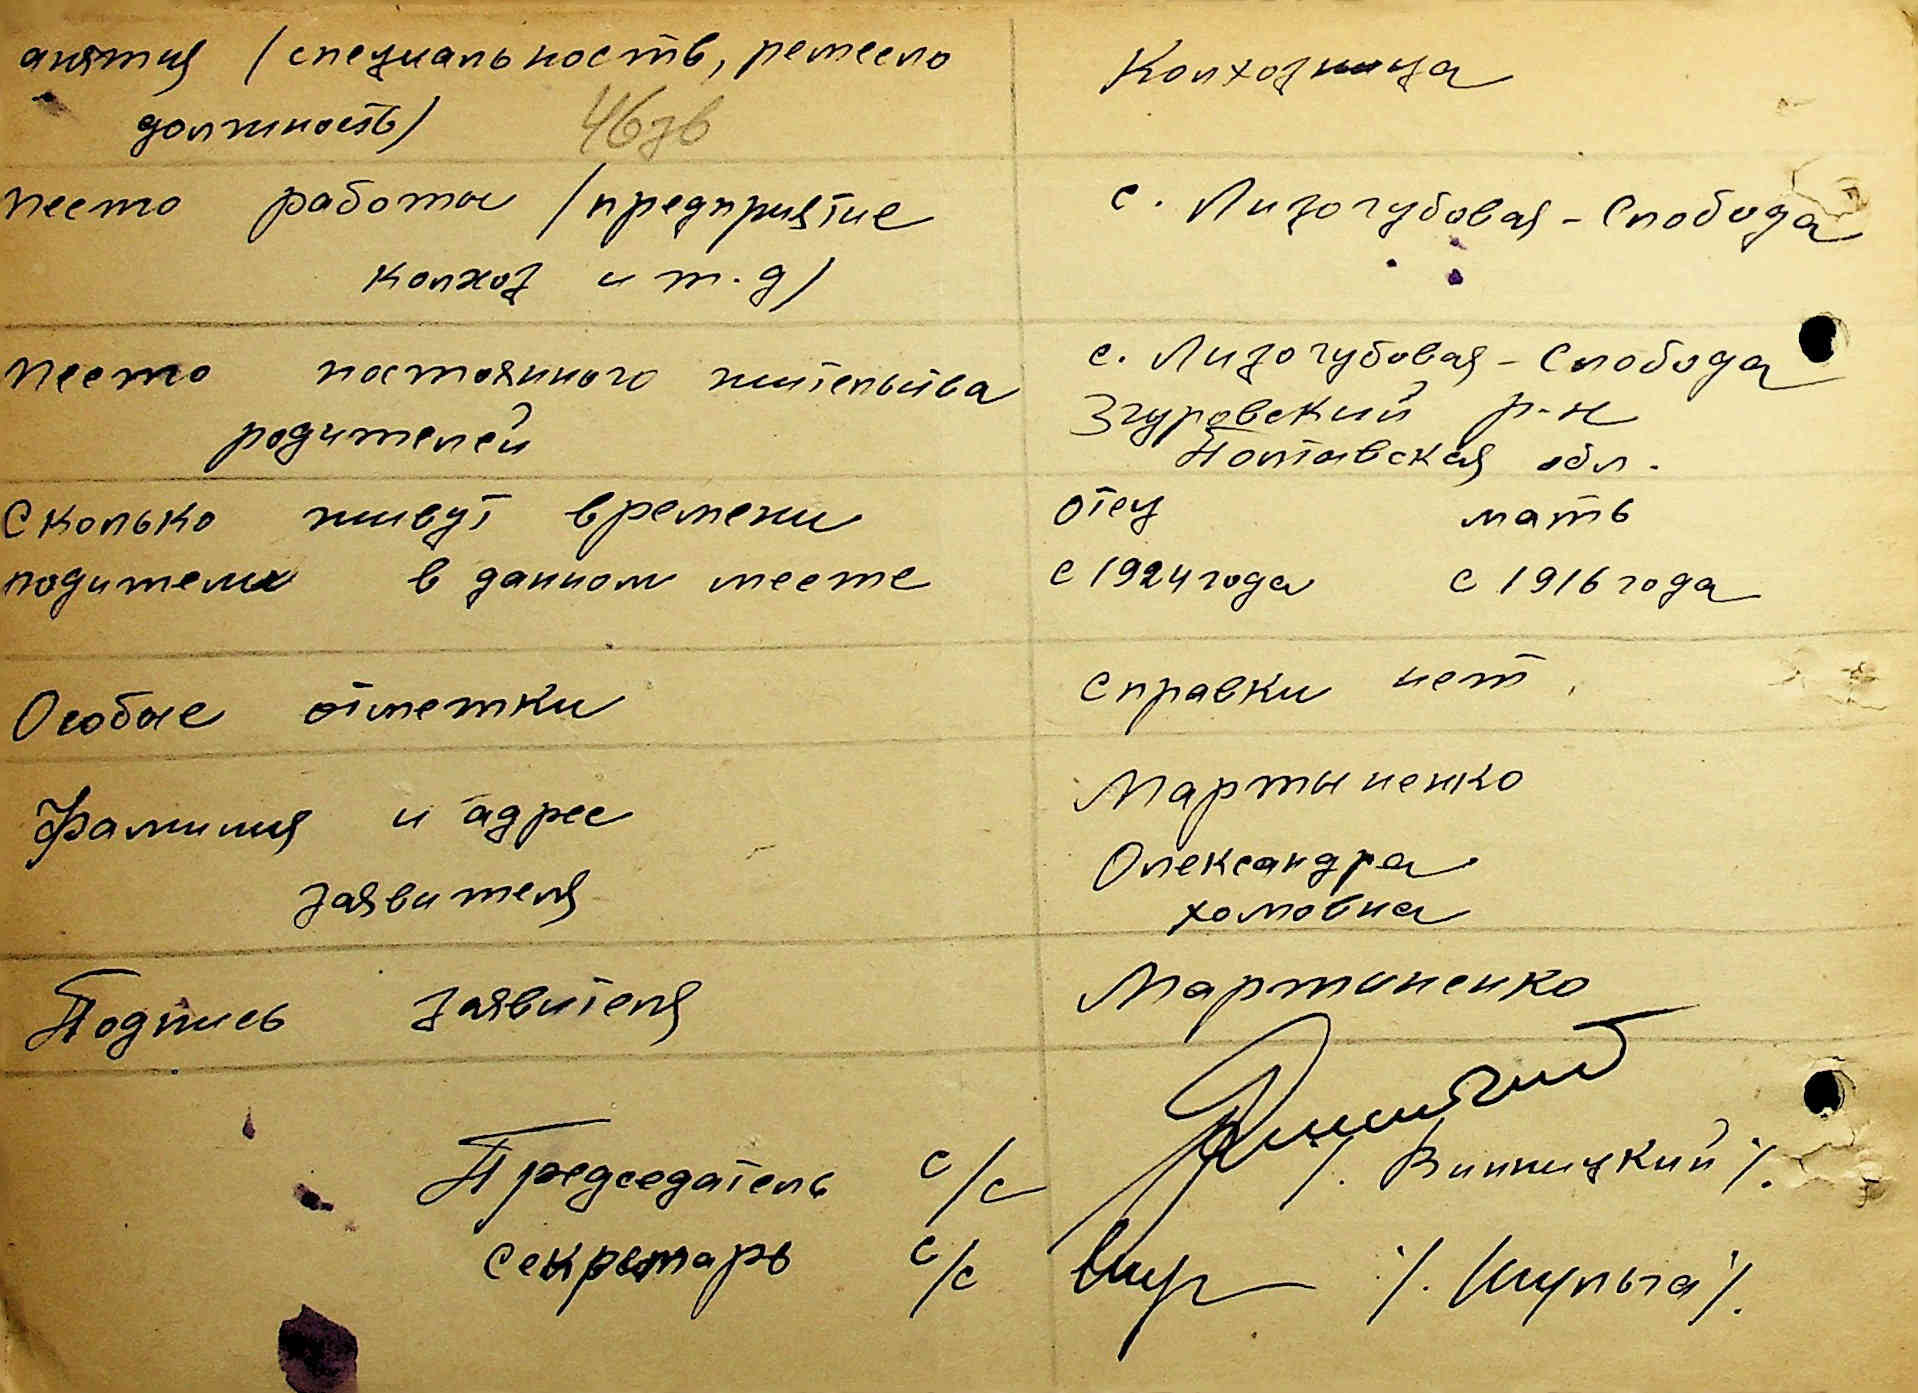 анятия /специальность, ремесло
Колхозница
должность/
место работы /предприятие
с. Лизогубовая - Слобода
колхоз и т. д/
место постоянного жительства
с. Лизогубовая - Слобода
родителей
Згуровский р-н
Полтавская обл.
Сколько живут времени
отец мать
родители в данном месте
с 1924 года с 1916 года
Особые отметки
справки нет
Фамилия и адрес
Мартыненко
заявителя
Олександра
хомовна
Подпись заявителя
Мартиненко
Председатель с/с
/. Винницкий /.
Секретарь с/с
/. Шульга /.